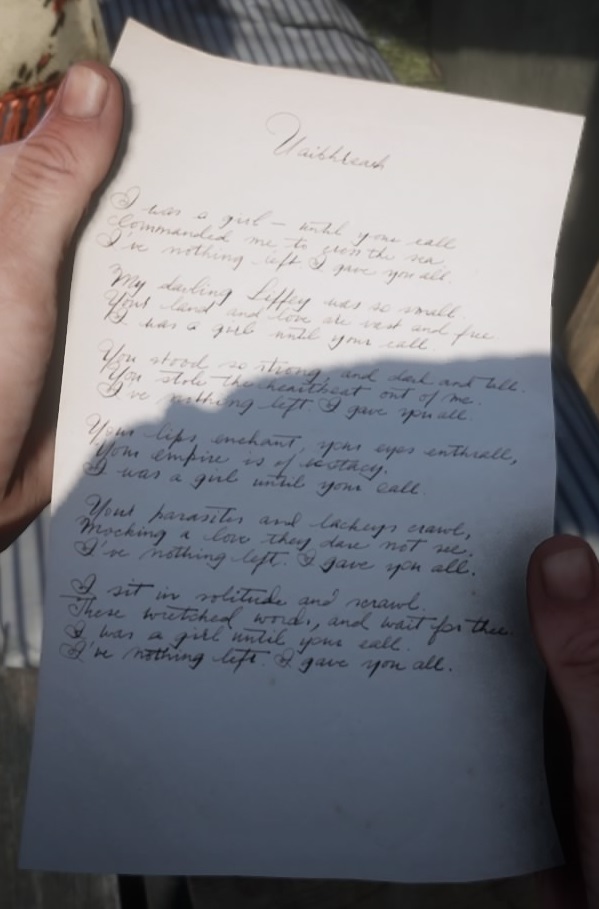 Uaibhreach
I was a girl – until your call
Commanded me to cross the sea
I've nothing left I gave you all.
My darling Liffey was so small.
Your land and love are vast and free.
I was a girl until your call.
You stood so strong, and dark and tall.
You stole the heartbeat out of me.
I've nothing left. I gave you all.
Your lips, enchant, your eyes enthrall,
Your empire is of ecstacy.
I was a girl until your call.
Your parasites and lackeys crawl,
Mocking a love they dare not see.
I've nothing left. I gave you all.
I sit in solitude and scrawl.
These wretched words, and wait for thee.
I was a girl until your call.
I've nothing left. I gave you all.